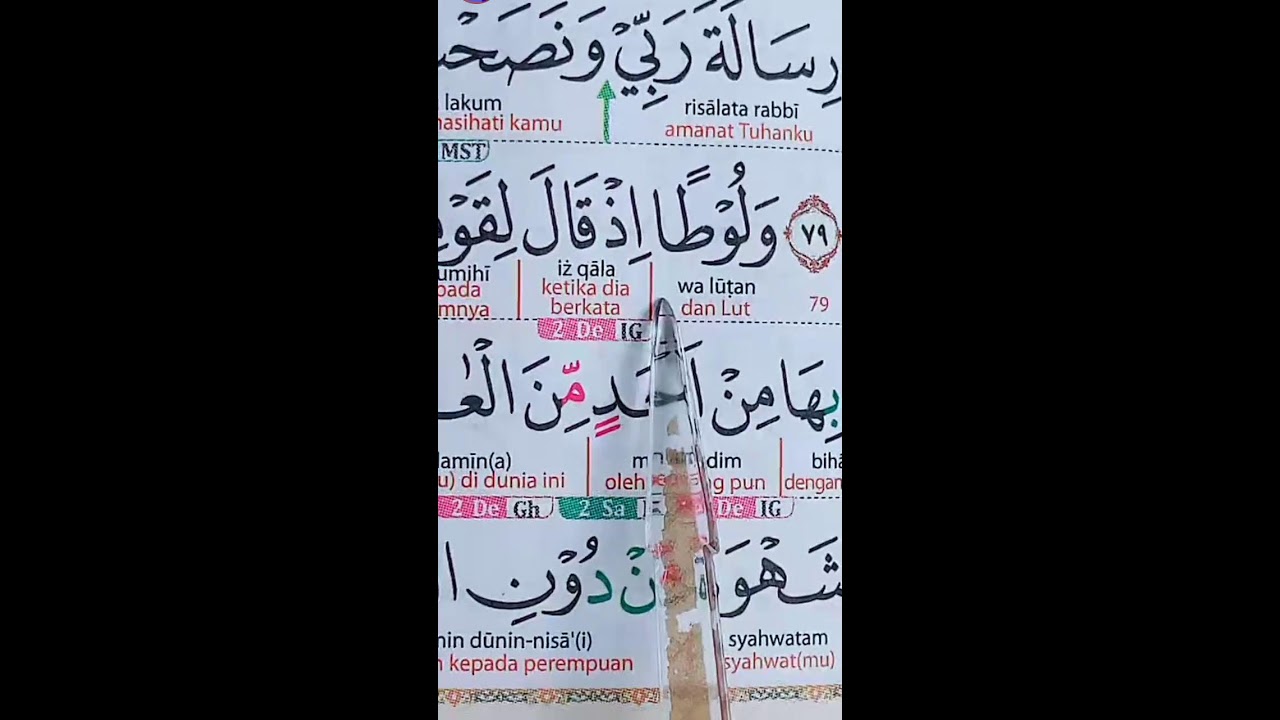 رِسَالَةَ رَبِّيْ وَنَصَحْ
risālata rabbī lakum
amanat Tuhanku nasihati kamu
MST
٧٩ وَلُوْطًا اِذْ قَالَ لِقَوْمِ
wa lūṭan iż qāla umihī
79 dan Lut ketika dia berkata pada mnya
2 De IG
بِهَا مِنْ اَحَدٍ مِّنَ الْعٰ
bihā dim lamīn(a)
dengan oleh g pun u) di dunia ini
De IG 2 Sa 2 De Gh
شَهْوَ نْ دُوْنِ ا
syahwatam min dūnin-nisā'(i)
syahwat(mu) n kepada perempuan